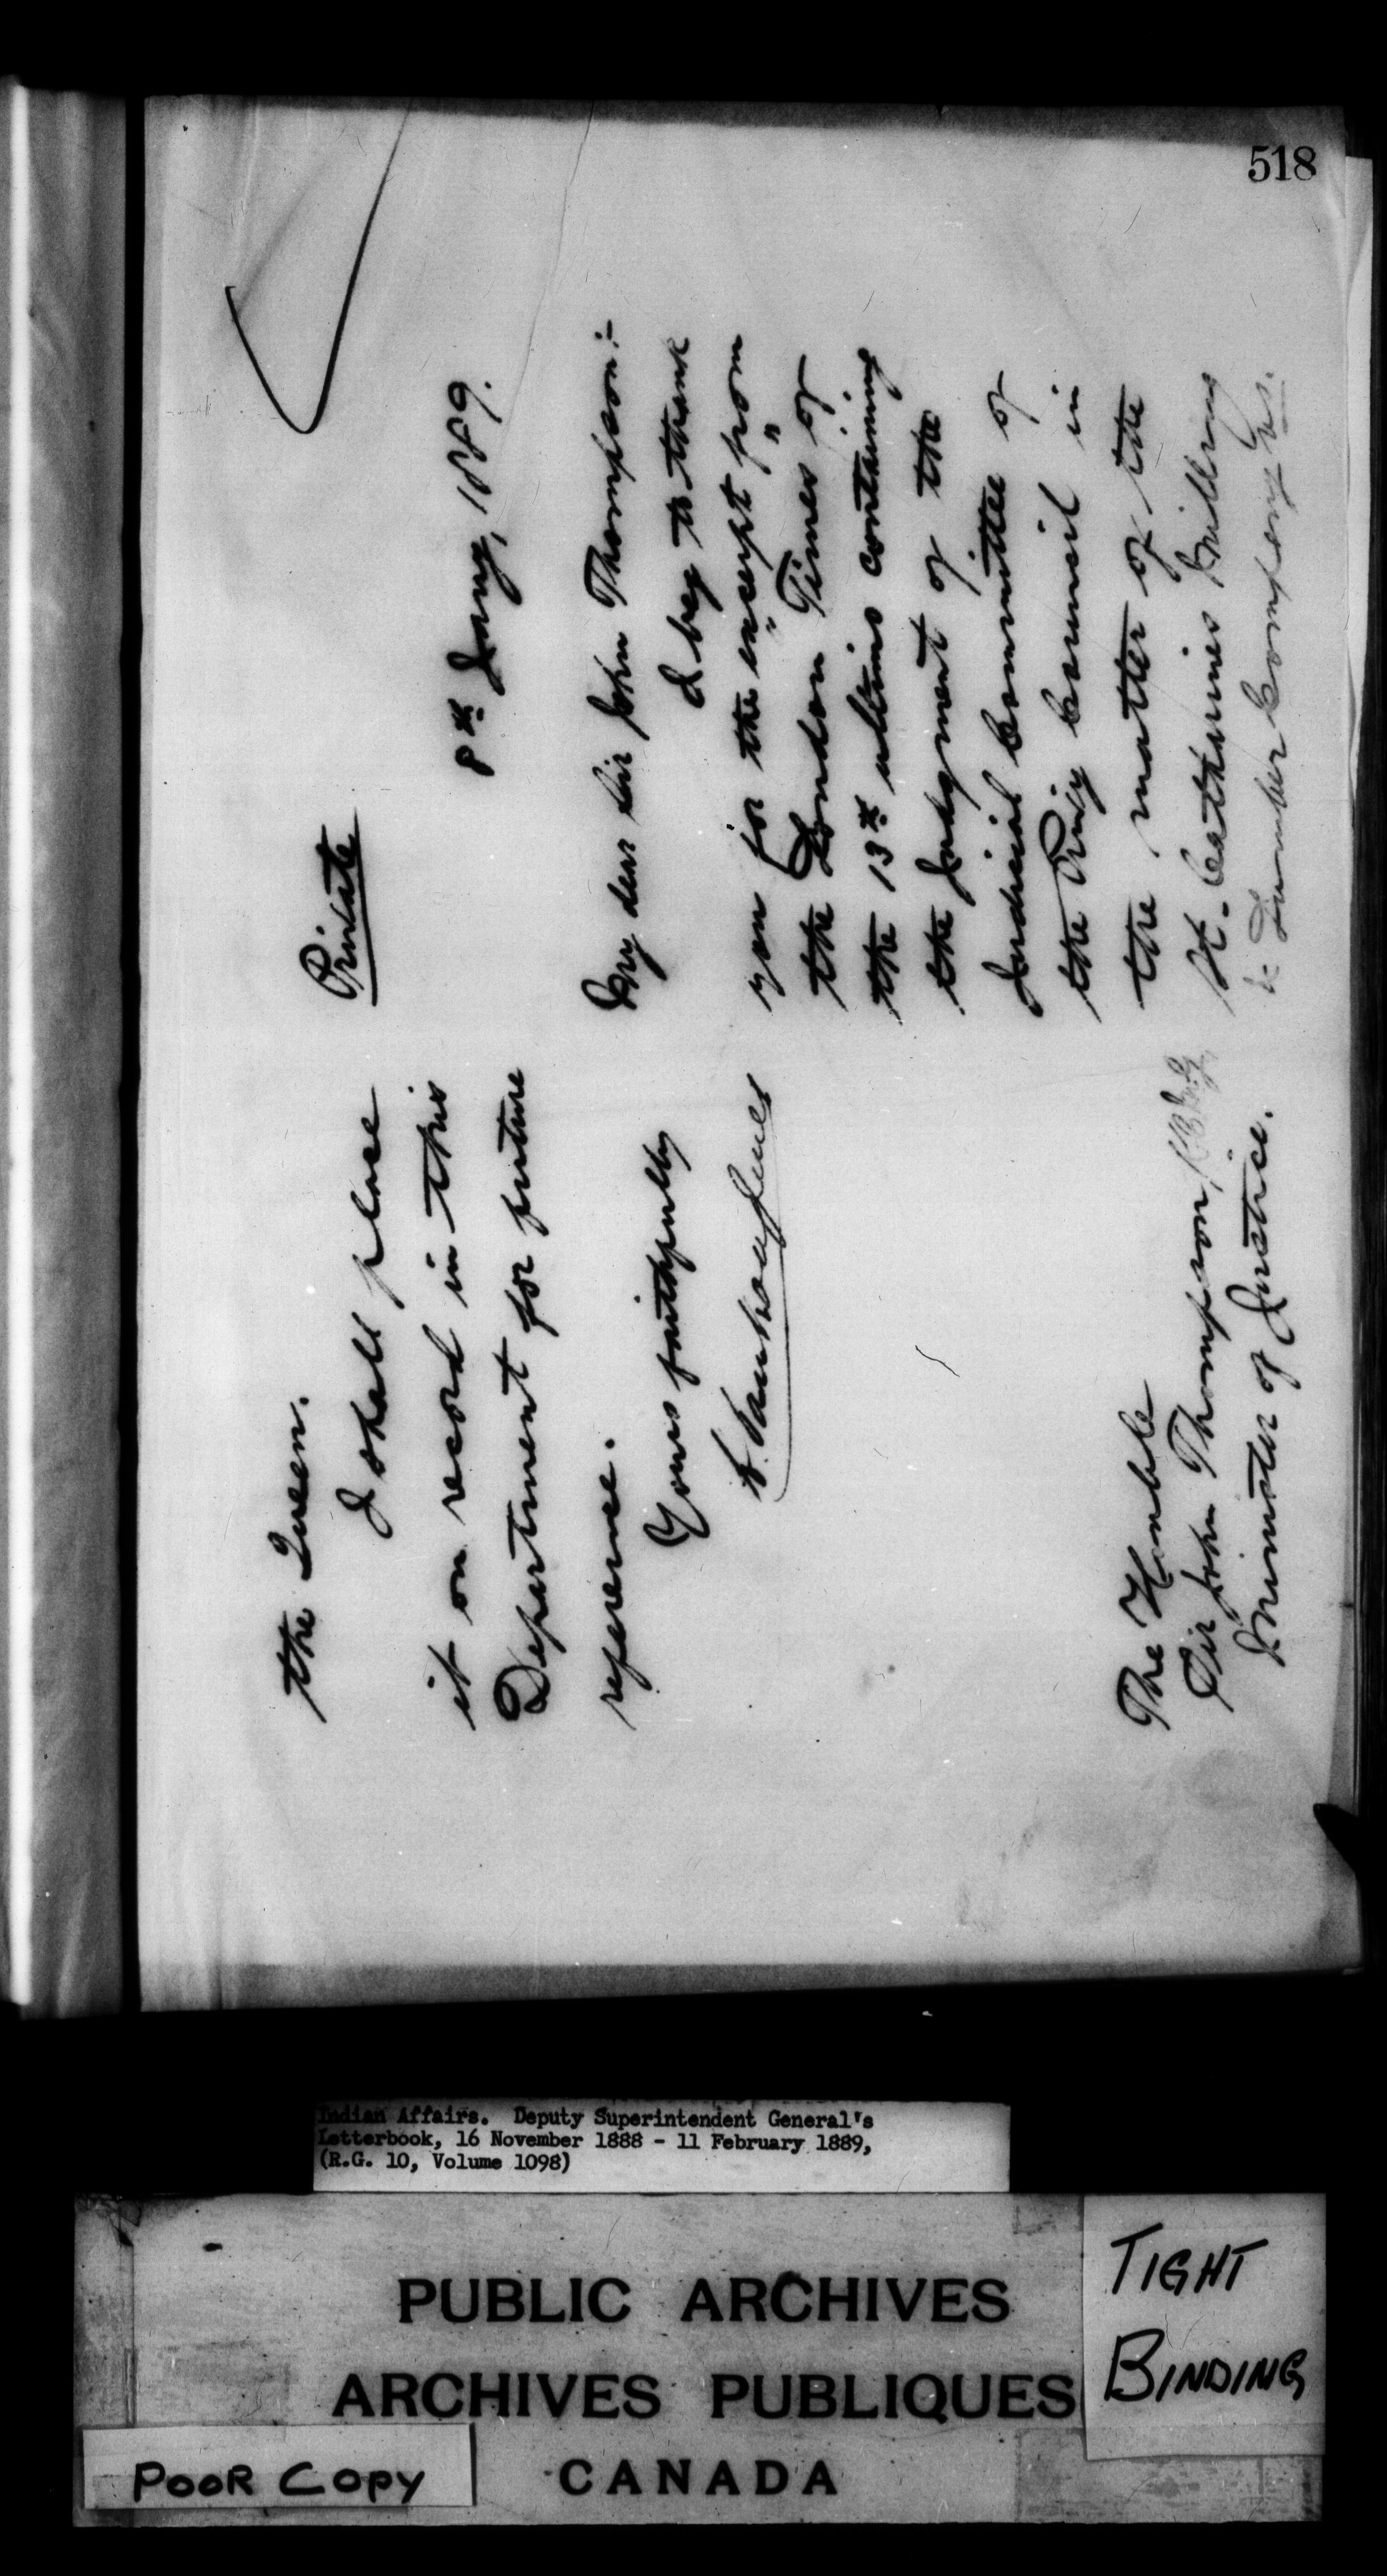 518
Private
8th Jany, 1889.
My dear Sir John Thompson:-
I beg to thank
you for the excerpt from
the London "Times" of
the 13th ultimo containing
the Judgment of the
Judicial Committee of
the Privy Council in
the matter of the
St. Catharines Milling
& Lumber Company vs.
the Queen.
I shall place
it on record in this
Department for future
reference.
Yours faithfully
L. Vankoughnet
The Honble
Sir John Thompson, K.C.M.G.
Minister of Justice.
Indian Affairs. Deputy Superintendent General's
Letterbook, 16 November 1888 - 11 February 1889,
(R.G. 10, Volume 1098)
PUBLIC ARCHIVES
ARCHIVES PUBLIQUES
CANADA
TIGHT
BINDING
POOR COPY